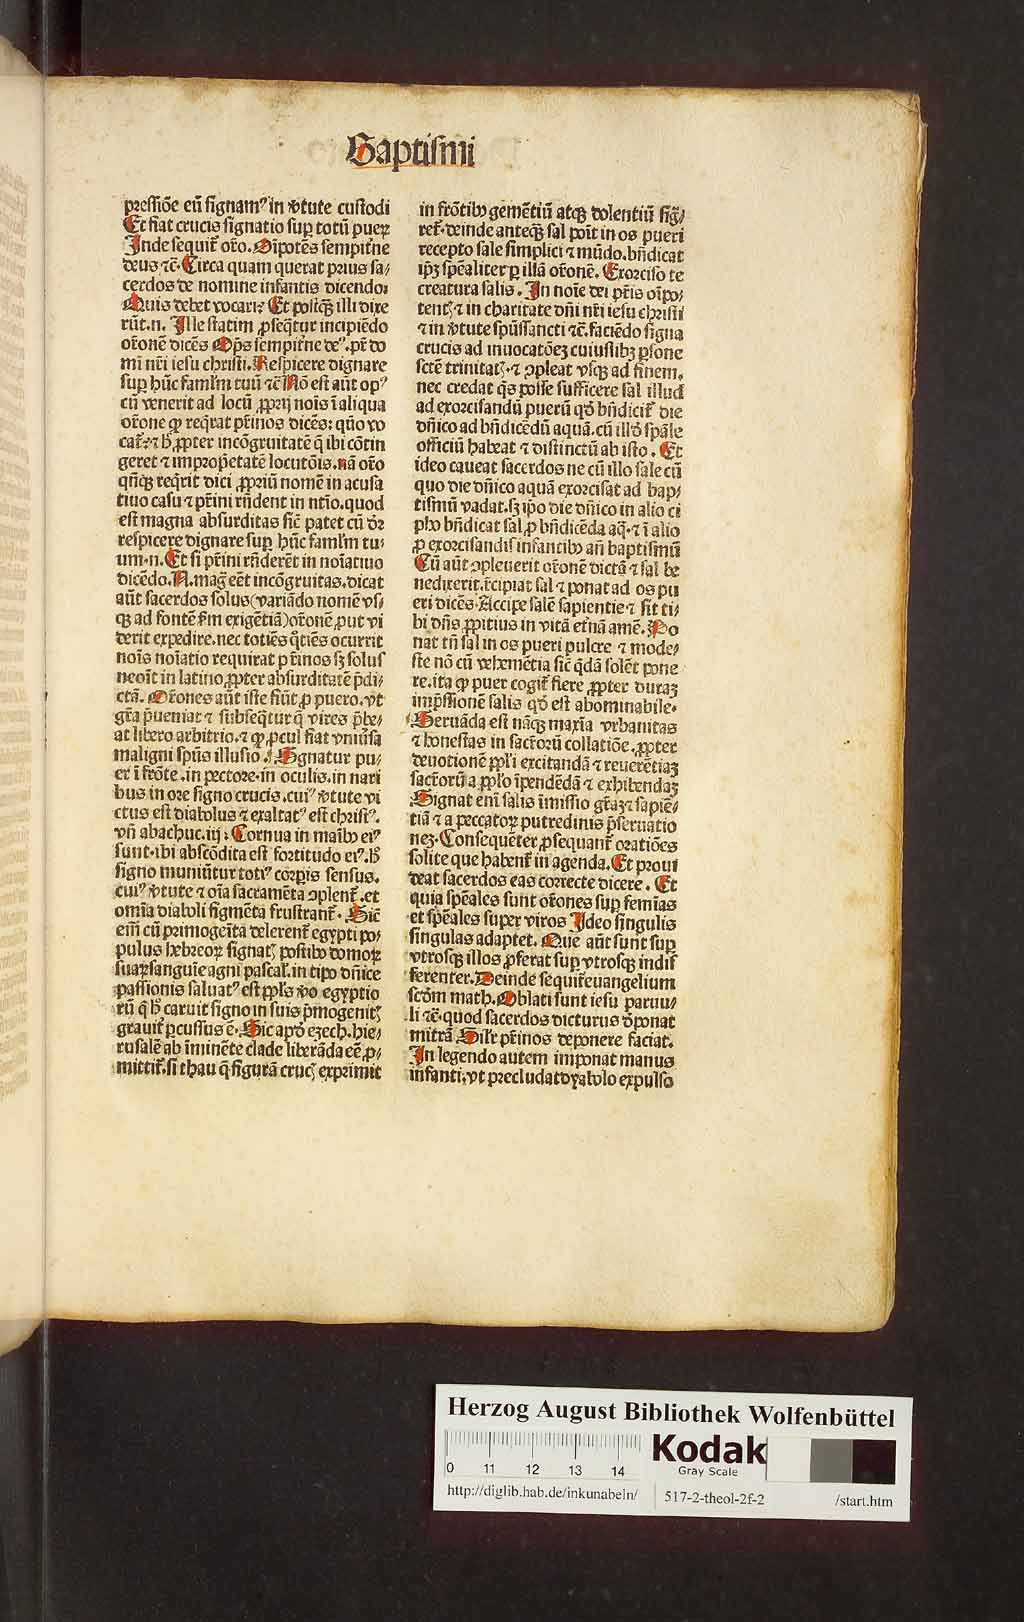 Baptismi
pressiōe eū signamꝰ in v̄tute custodi
Et fiat crucis signatio suꝑ totū pueꝝ
Inde sequit̄ oꝛo. Oīpotēs sempit̄ne
deus ⁊c̄. Circa quam querat prius sa⸗
cerdos de nomine infantis dicendo:
Quis debet vocari? Et postqꝫ illi dixe
rūt .n. Ille statim ꝓseq̄tur incipiēdo
oꝛ̄one dicēs Op̄s sempit̄ne deꝰ. pr̄ do
mī nr̄i iesu christi. Respicere dignare
suꝑ hūc famlm̄ tuū ⁊c̄ Nō est aūt opꝰ
cū venerit ad locū ꝓprij nois ī aliqua
oꝛ̄one ꝙ req̄rat pr̄inos dicēs: quō vo
cat̄? ⁊ hͦ ꝓpter incōgruitatē q̄ ibi cōtin
geret ⁊ impropēatē locutōis. nā oꝛo
qn̄qꝫ req̄rit dici ꝓpriū nomē in acusa
tiuo casu ⁊ pr̄ini rn̄dent in nt̄io. quod
est magna absurditas sic̄ patet cū dꝛ̄
respicere dignare suꝑ hūc famlm̄ tu⸗
um .n. Et si pr̄ini rn̄derēt in noīatiuo
dicēdo. N. maḡ eēt incōgruitas. dicat
aūt sacerdos solus (variādo nomē vs⸗
qꝫ ad fontē fm̄ exigētiā) oꝛ̄onē ꝓut vi
derit expedire. nec totiēs q̄tiēs ocurrit
noīs noīatio requirat pr̄inos sꝫ solus
neoīt in latino ꝓpter absurditatē p̄di⸗
ctā. Oꝛ̄ones aūt iste fiūt ꝓ puero. vt
gr̄a p̄ueniat ⁊ subseq̄tur q̄ vires p̄be⸗
at libero arbitrio. ⁊ ꝙ ꝓcul fiat vniūsa
maligni spūs illusio. Signatur pu⸗
er ī frōte. in pectore. in oculis. in nari
bus in ore signo crucis. cuiꝰ v̄tute vi
ctus est diabolus ⁊ exaltatꝰ est christꝰ.
vn̄ abachuc. iij: Cornua in maībꝰ eiꝰ
sunt. ibi abscōdita est fortitudo eiꝰ. hͦ
signo muniūtur totiꝰ corpis sensus.
cuiꝰ v̄tute ⁊ oīa sacramēta ↄplent̄. et
omīa diaboli figmēta frustrant̄. Sic̄
em̄ cū primogeīta delerent̄ egypti po⸗
pulus hebreoꝝ signatꝭ postibꝰ domoꝝ
suaꝝ sanguīe agni pascal̄. in tipo dn̄ice
passionis saluatꝰ est ppl̄s v̄o egyptio
rū q̄ hͦ caruit signo in suis p̄mogenitꝭ
grauit̄ ꝑcussus ē. Sic apd̄ ezech. hie⸗
rusalē ab īminēte clade liberāda eē ꝓ⸗
mittit̄. si thau q̄ figurā crucꝭ exprimit
in frōtibꝰ gemētiū atqꝫ dolentiū siḡ⸗
ret̄. deinde anteqꝫ sal poīt in os pueri
recepto sale simplici ⁊ mūdo. bn̄dicat
ip̄ꝫ spēaliter ꝑ illā oꝛ̄onē. Exorciso te
creatura salis. In noīe dei pr̄is oīpo⸗
tentꝭ ⁊ in charitate dn̄i nr̄i iesu christi
⁊ in v̄tute spūssancti ⁊c̄. faciēdo signa
crucis ad inuocatōeꝫ cuiuslibꝫ ꝑsone
sctē trinitatꝭ. ⁊ ↄpleat vsqꝫ ad finem.
nec credat q̄s posse sufficere sal illud
ad exorcisandū puerū qd̄ bn̄dicit̄ die
dn̄ico ad bn̄dicēdū aquā. cū illd̄ spāle
officiū habeat ⁊ distinctū ab isto. Et
ideo caueat sacerdos ne cū illo sale cū
quo die dn̄ico aquā exorcisat ad bap⸗
tismū vadat. sꝫ ip̄o die dn̄ico in alio ci
pho bn̄dicat sal ꝓ bn̄dicēda aq̄. ⁊ ī alio
ꝓ exorcisandis infantibꝰ an̄ baptismū
Cū aūt ↄpleuerit oꝛ̄onē dictā ⁊ sal be
nedixerit. r̄cipiat sal ⁊ ponat ad os pu
eri dicēs. Accipe salē sapientie ⁊ sit ti⸗
bi dn̄s ꝓpitius in vitā et̄nā amē. Po
nat tn̄ sal in os pueri pulcre ⁊ mode⸗
ste nō cū vehemētia sic̄ q̄dā solēt pone
re. ita ꝙ puer cogit̄ flere ꝓpter duraꝫ
imp̄ssionē salis qd̄ est abominabile.
Seruāda est nāqꝫ maxīa vrbanitas
⁊ honestas in sacr̄orū collatiōe. ꝓpter
deuotionē ppl̄i excitandā ⁊ reuerētiaꝫ
sacr̄orū a ppl̄o īpendēdā ⁊ exhibendaꝫ
Signat enī salis īmissio gr̄aꝫ ⁊ sapiē⸗
tiā ⁊ a peccatoꝝ putredinis p̄seruatio
neꝫ. Consequēter ꝓsequant̄ oratiōes
solite que habent̄ in agenda. Et proui
deat sacerdos eas correcte dicere. Et
quia spēales sunt oꝛ̄ones suꝑ femīas
et spēales super viros Ideo singulis
singulas adaptet. Que aūt sunt suꝑ
vtrosqꝫ illos ꝓferat suꝑ vtrosqꝫ indif
ferenter. Deinde sequit̄ euangelium
scd̄m math. Oblati sunt iesu paruu⸗
li ⁊c̄. quod sacerdos dicturus d̄ponat
mitrā Silr̄ pr̄inos deponere faciat.
In legendo autem imponat manus
infanti. vt precludat dyabolo expulso
Herzog August Bibliothek Wolfenbüttel
0 11 12 13 14
Kodak
Gray Scale
http://diglib.hab.de/inkunabeln/
517-2-theol-2f-2
/start.htm